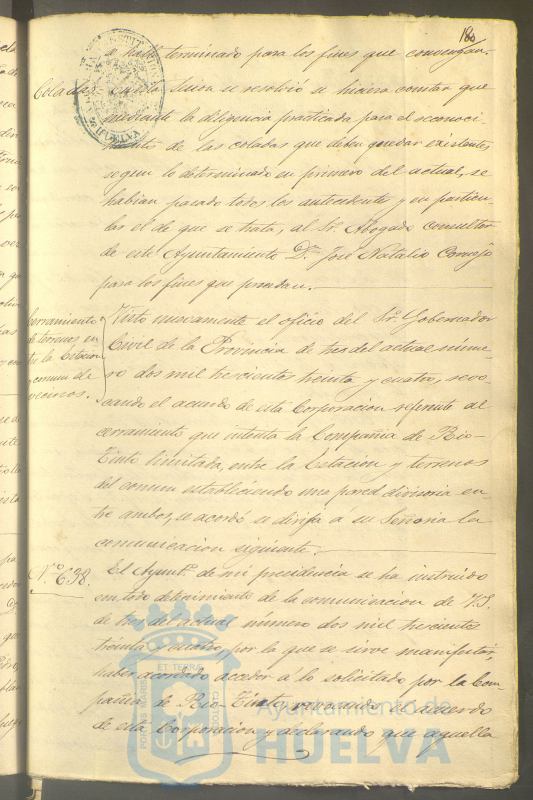 180
se halle terminado para los fines que convengan.
Coladas
sesion se resolvió se hiciera constar que
mediante la diligencia practicada para el reconoci
miento de las coladas que deben quedar existentes
segun lo determinado en primero del actual, se
habian pasado todos los antecedentes y en particu
lar el de que se trata, al Sr. Abogado consultor
de este Ayuntamiento Dn. José Natalio Cornejo
para los fines que procedan.
Cerramiento
de terrenos en
tre la Estacion
y comun de
vecinos.
Visto nuevamente el oficio del Sr. Gobernador
Civil de la Provincia de tres del actual núme-
ro dos mil trescientos treinta y cuatro, revo-
cando el acuerdo de esta Corporacion referente al
cerramiento que intenta la Compañia de Rio-
Tinto limitada, entre la Estacion y terrenos
del comun estableciendo una pared divisoria en-
tre ambos, se acordó se dirija á su Señoria la
comunicacion siguiente.
N.o 638.
El Ayunt.o de mi presidencia se ha instruido
con todo detenimiento de la comunicacion de V.S.
de tres del actual número dos mil trescientos
treinta y cuatro, por la que se sirve manifestar,
haber acordado acceder á lo solicitado por la Com-
pañia de Rio-Tinto, revocando el acuerdo
de esta Corporacion y declarando que aquella
HUELVA
PORTUS MARIS
ET TERRÆ
CUSTODIA
Ayuntamiento de
HUELVA